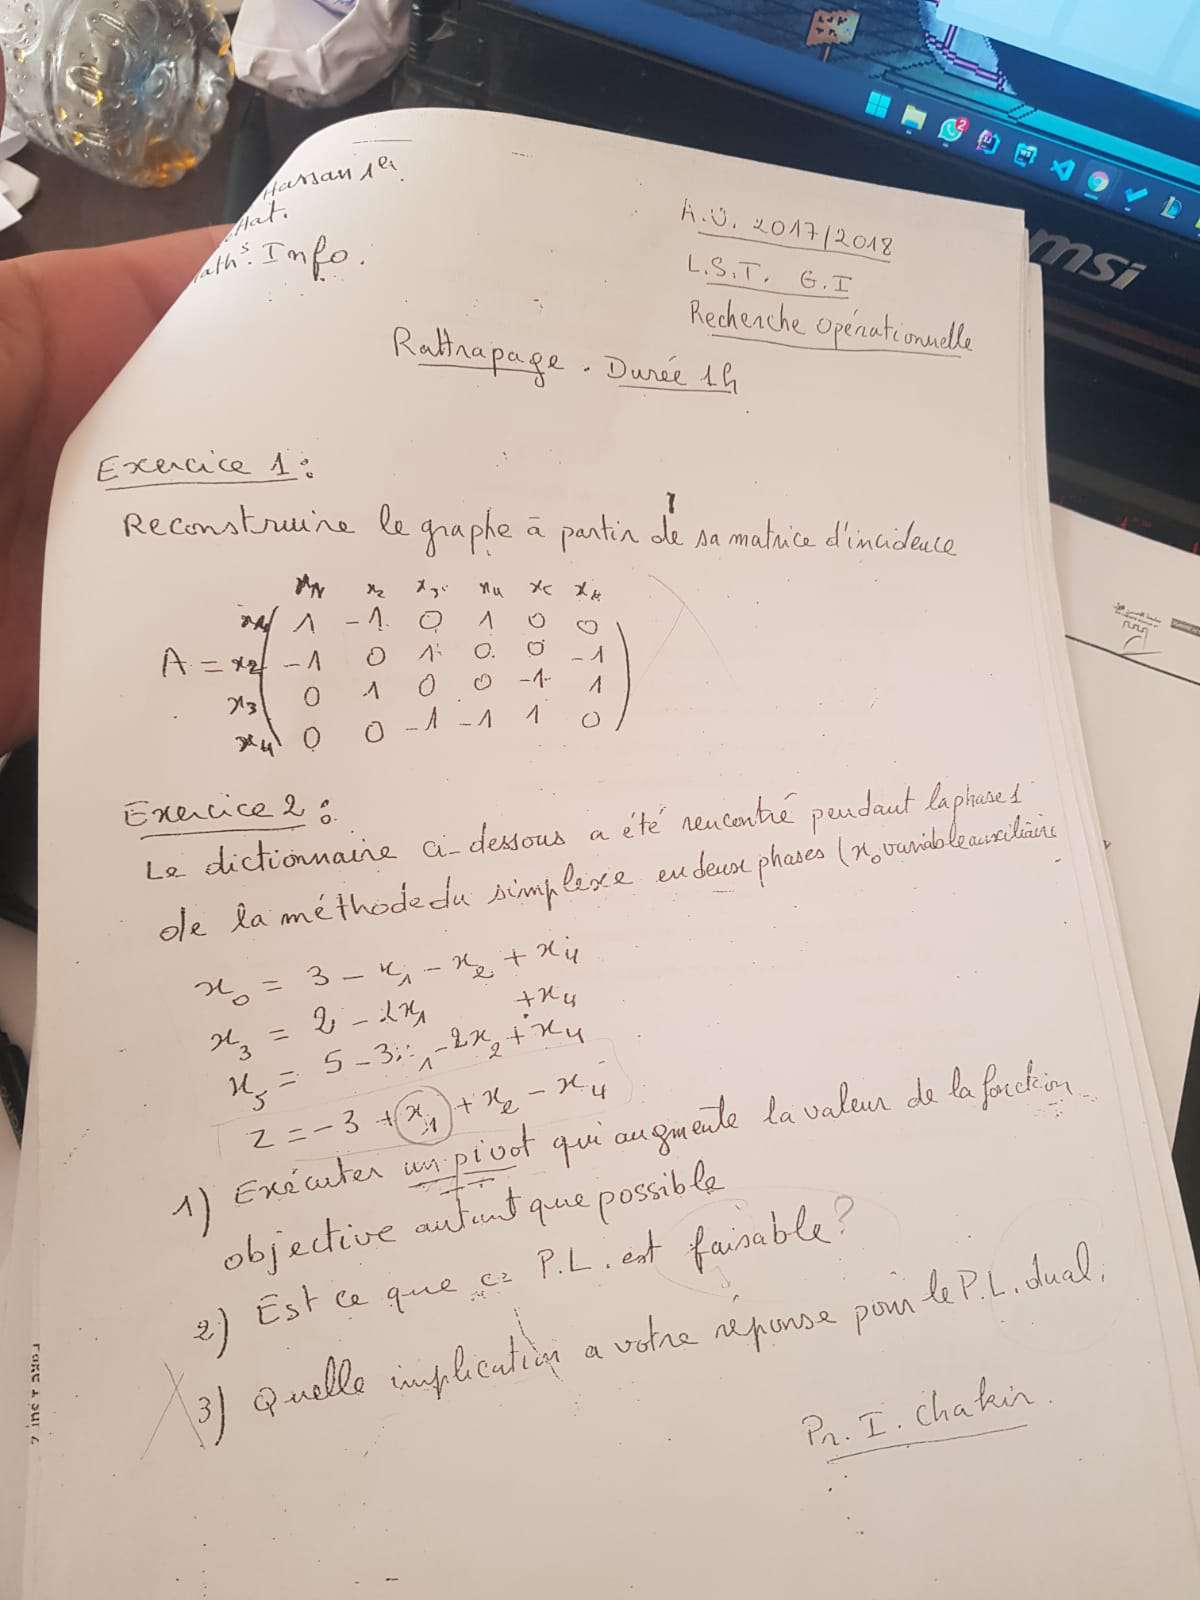 Hassan 1er.
A.U. 2017/2018
L.S.T. G.I
Info.
Recherche opérationnelle
Rattrapage. Durée 1h
msi
Exercice 1:
Reconstruire le graphe à partir de sa matrice d'incidence
x1 x2 x3 x4
x1 1 -1 0 1 0 0
A = x2 -1 0 1 0 0 -1
x3 0 1 0 0 -1 1
x4 0 0 -1 -1 1 0
Exercice 2:
Le dictionnaire ci-dessous a été rencontré pendant la phase 1
de la méthode du simplexe en deux phases (x0 variable auxiliaire
x0 = 3 - x1 - x2 + x4
x3 = 2 - 2x1 + x4
x5 = 5 - 3x1 - 2x2 + x4
z = -3 + x1 + x2 - x4
1) Exécuter un pivot qui augmente la valeur de la fonction
objective autant que possible
2) Est ce que ce P.L. est faisable?
3) Quelle implication a votre réponse pour le P.L. dual.
Pr. I. Chakir